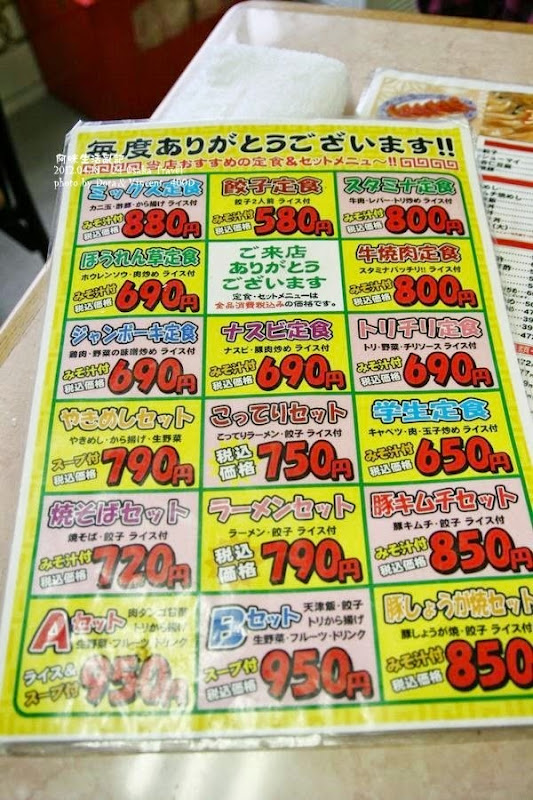 毎度ありがとうございます!!
当店おすすめの定食&セットメニュー〜!!
ミックス定食
カニ玉・酢豚・から揚げ ライス付
みそ汁付
税込価格
880円
餃子定食
餃子2人前 ライス付
みそ汁付
税込価格
580円
スタミナ定食
牛肉・レバー・トリ炒め ライス付
みそ汁付
税込価格
800円
ほうれん草定食
ホウレンソウ・肉炒め ライス付
みそ汁付
税込価格
690円
ご来店
ありがとう
ございます
定食・セットメニューは
全品消費税込みの価格です。
牛焼肉定食
スタミナバッチリ!! ライス付
みそ汁付
税込価格
800円
ジャンボーキ定食
鶏肉・野菜の味噌炒め ライス付
みそ汁付
税込価格
690円
ナスビ定食
ナスビ・豚肉炒め ライス付
みそ汁付
税込価格
690円
トリチリ定食
トリ・野菜・チリソース ライス付
みそ汁付
税込価格
690円
やきめしセット
やきめし・から揚げ・生野菜
スープ付
税込価格
790円
こってりセット
こってりラーメン・餃子 ライス付
税込
価格
750円
学生定食
キャベツ・肉・玉子炒め ライス付
みそ汁付
税込価格
650円
焼そばセット
焼そば・餃子 ライス付
みそ汁付
税込価格
720円
ラーメンセット
ラーメン・餃子 ライス付
税込
価格
790円
豚キムチセット
豚キムチ・餃子 ライス付
みそ汁付
税込価格
850円
Aセット
肉ダンゴ甘酢
トリから揚げ
生野菜・フルーツ・ドリンク
ライス&
スープ付
950円
Bセット
天津飯・餃子
トリから揚げ
生野菜・フルーツ・ドリンク
スープ付
税込価格
950円
豚しょうが焼セット
豚しょうが焼・餃子 ライス付
みそ汁付
税込価格
850